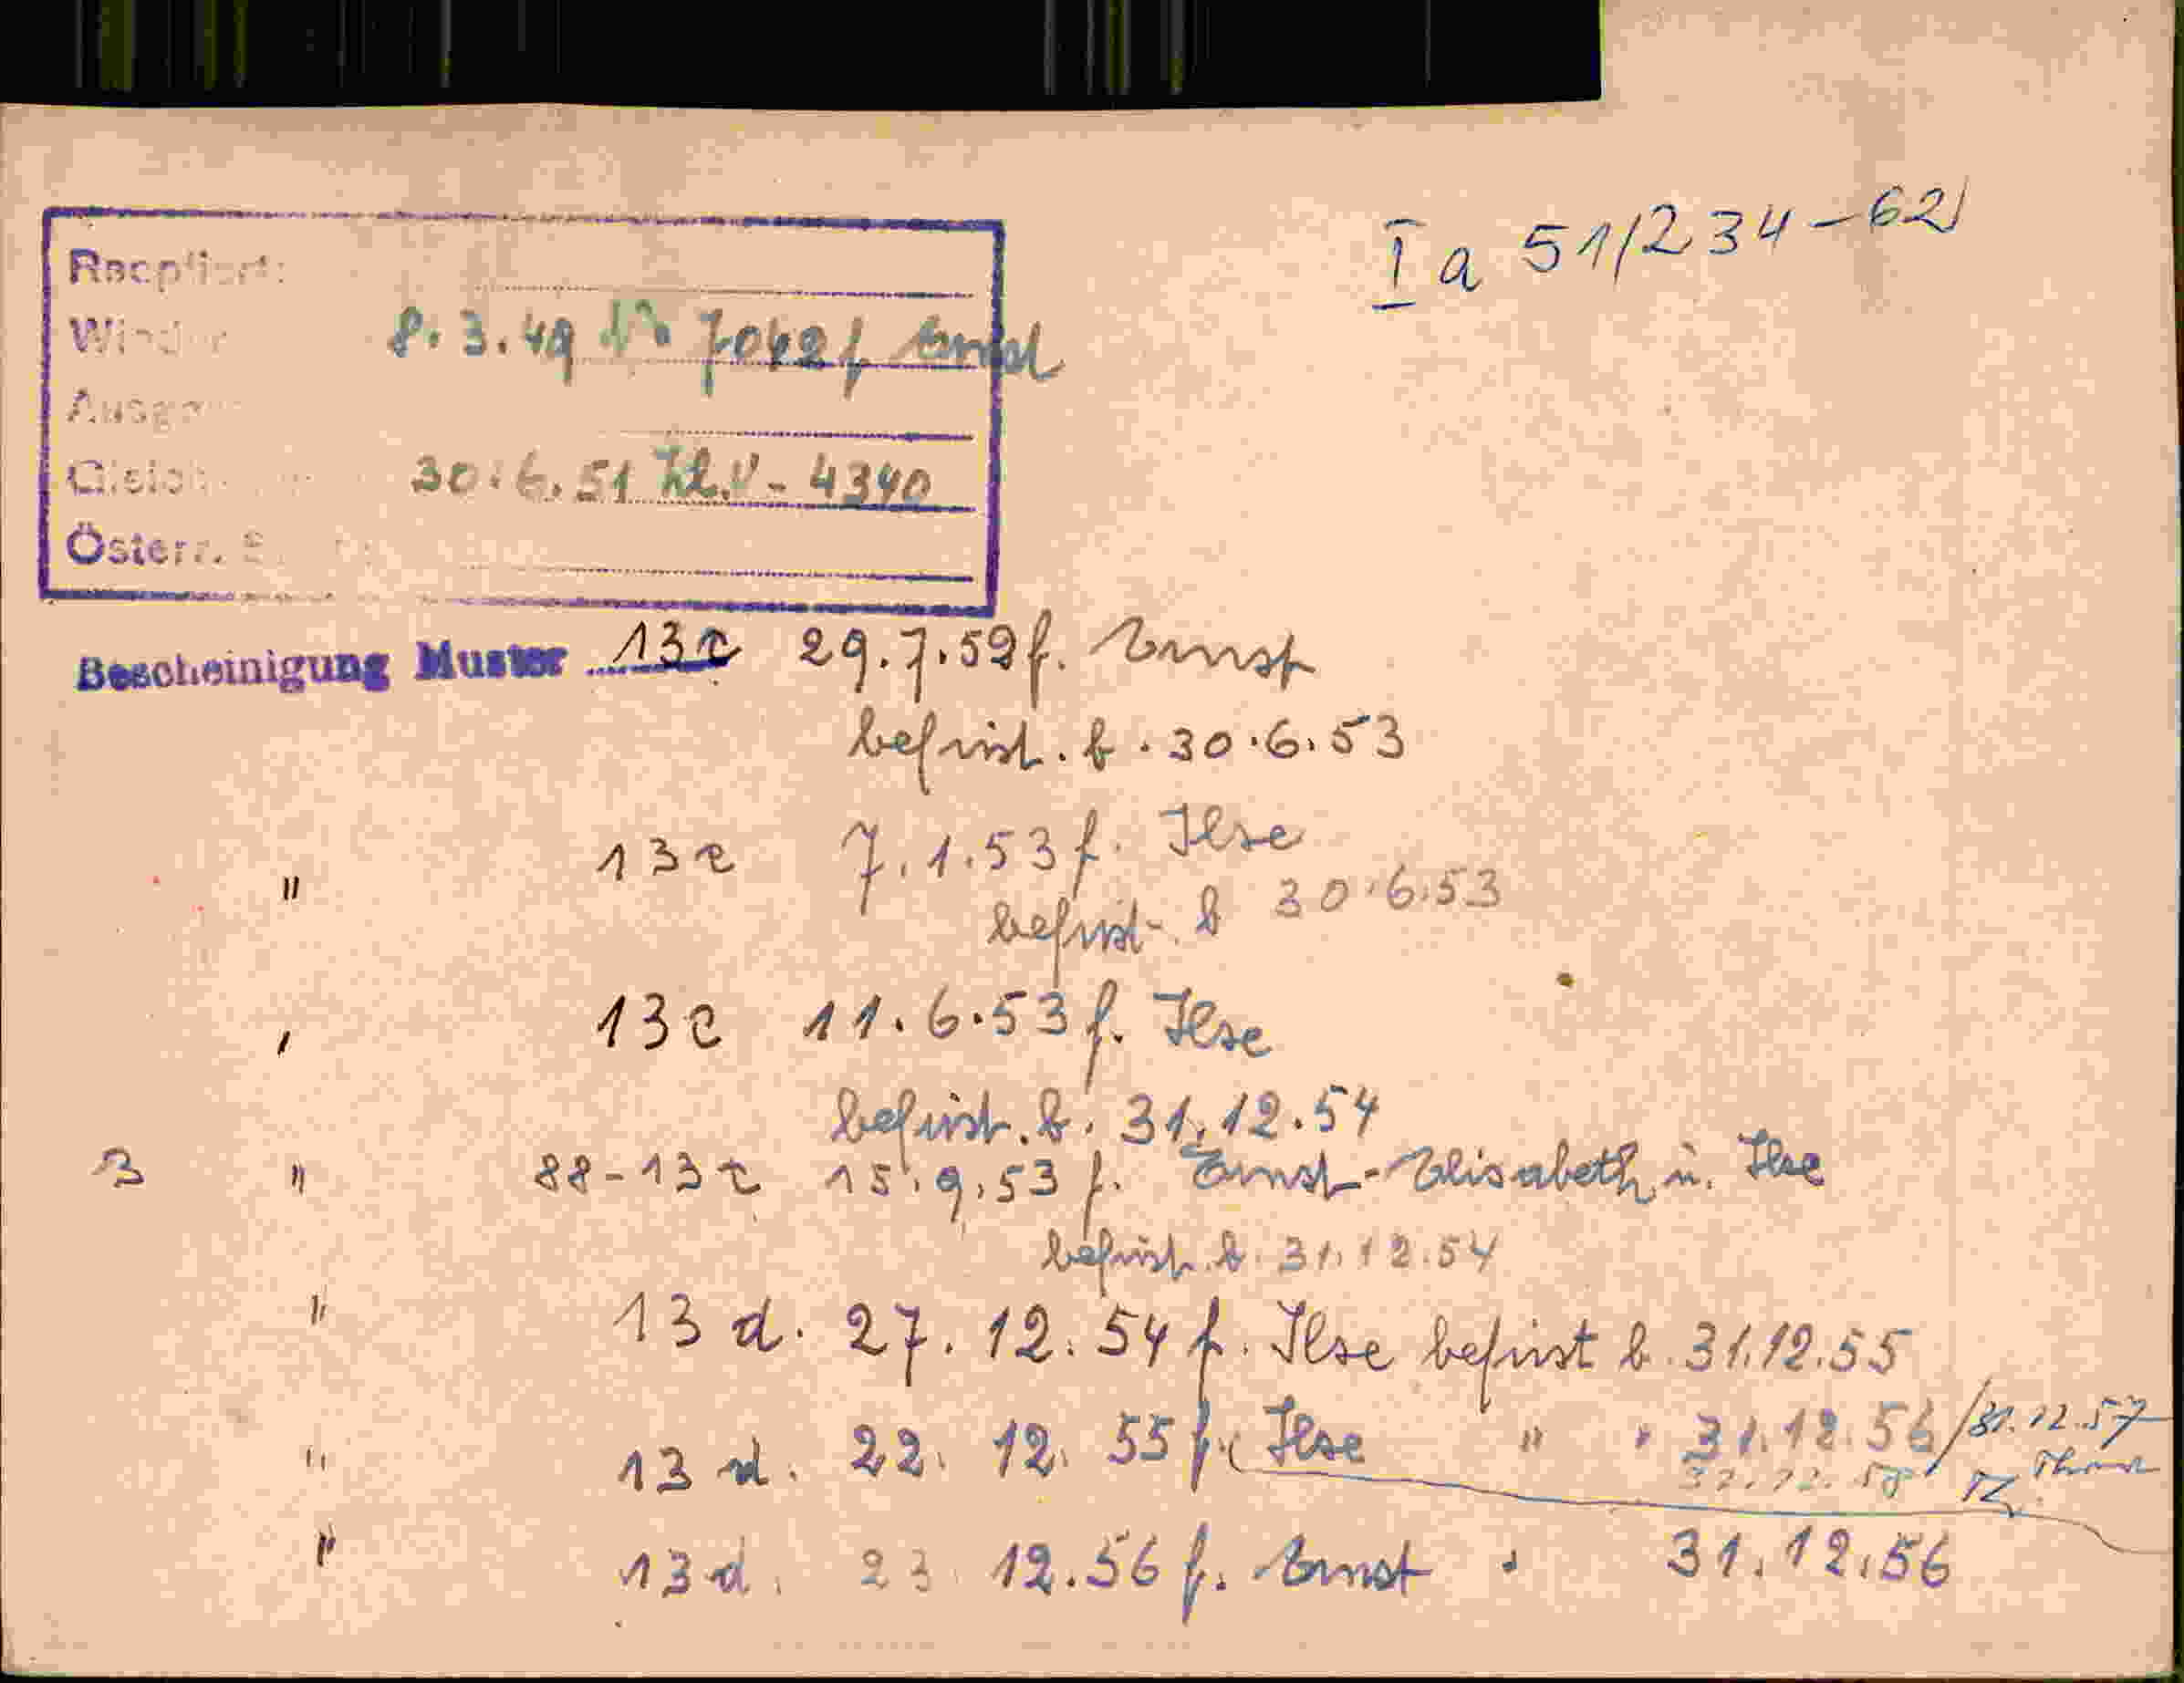 I a 51/234-62
8.3.49 7042 f Ernst
30.6.51 Zl. V-4340
Österr.
Bescheinigung Muster 13c 29.7.52 f. Ernst
befrist. b. 30.6.53
" 13c 7.1.53 f. Ilse
befrist. b 30.6.53
" 13c 11.6.53 f. Ilse
befrist. b. 31.12.54
3 " 88-13c 15.9.53 f. Ernst-Elisabeth u. Ilse
befrist. b. 31.12.54
" 13 d. 27.12.54 f. Ilse befrist b. 31.12.55
" 13 d. 22.12.55 f. Ilse " " 31.12.56/31.12.57
31.12.58
" 13 d. 23.12.56 f. Ernst " 31.12.56